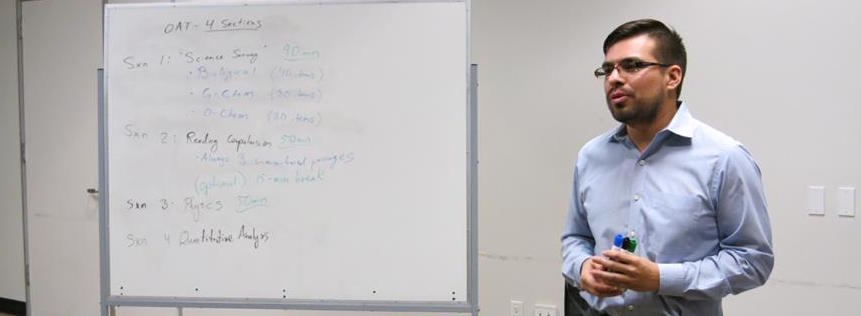 OAT - 4 Sections
Sxn 1: "Science Survey" 90 min
• Biological (40 items)
• G-Chem (30 items)
• O-Chem (30 items)
Sxn 2: Reading Comprehension 50 min
• Always 3 passages
(optional) 15-min break
Sxn 3: Physics 50 min
Sxn 4 Quantitative Analysis